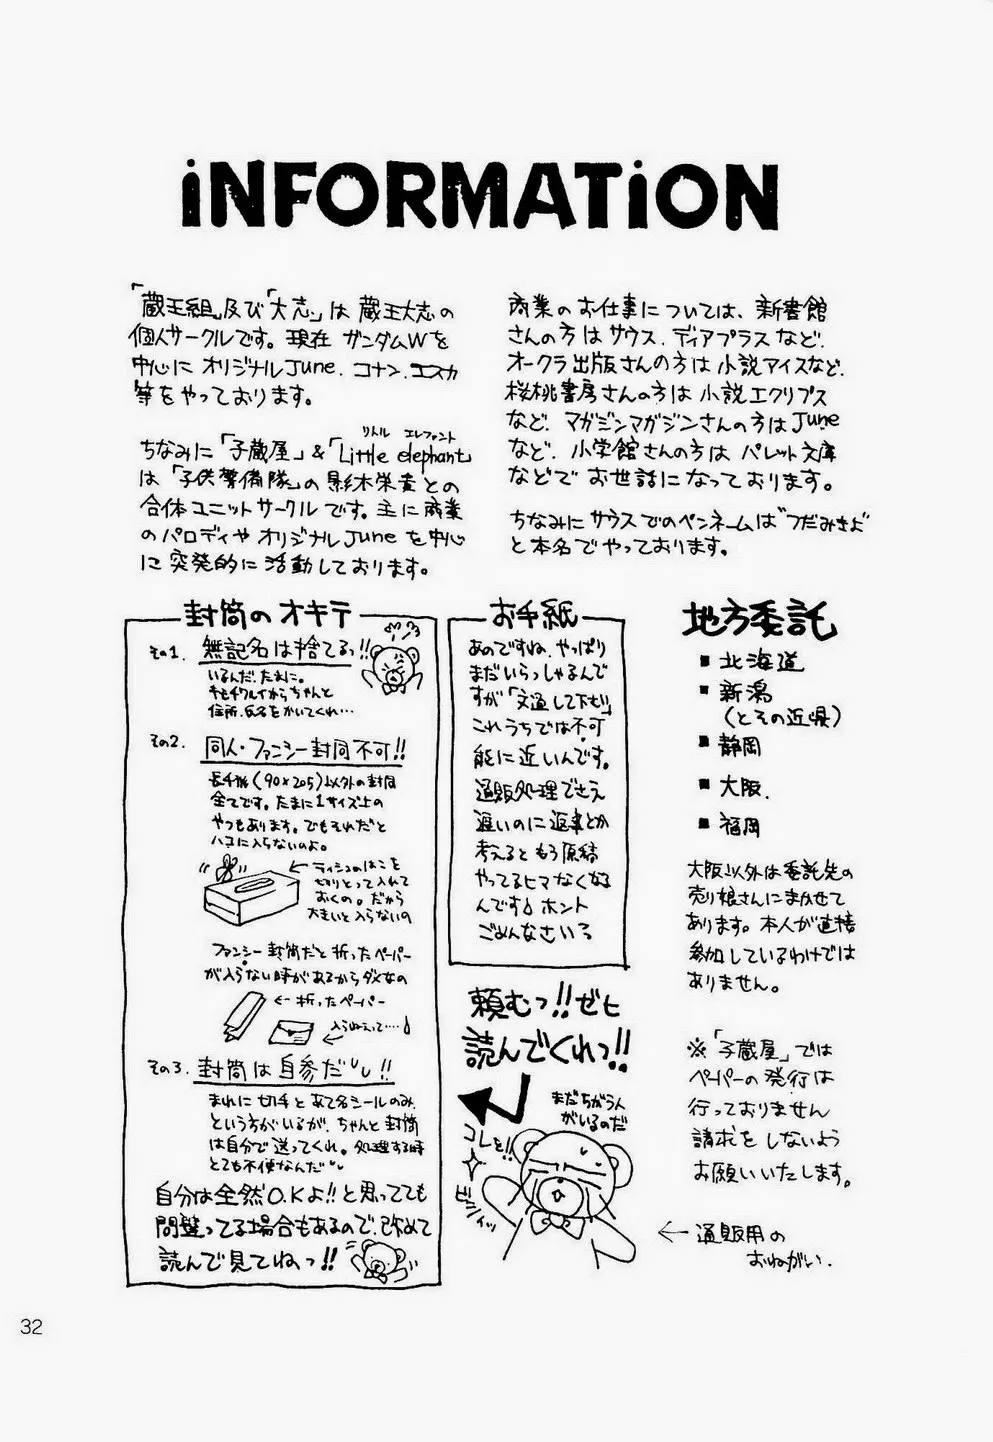 iNFORMATiON
「蔵王組」及び「大志」は 蔵王大志の
個人サークルです。現在 ガンダムWを
中心に オリジナルJune. コナン. エスカ
等をやっております。
リトル エレファント
ちなみに「子蔵屋」&「Little elephant」
は「子供警備隊」の影木栄貴との
合体ユニットサークルです。主に商業
のパロディや オリジナルJune を中心
に 突発的に活動しております。
商業のお仕事については、新書館
さんの方は サウス. ディアプラスなど.
オークラ出版さんの方は小説アイスなど.
桜桃書房さんの方は小説エクリプス
など. マガジンマガジンさんの方はJune
など、小学館さんの方は パレット文庫
などで お世話になっております。
ちなみに サウスでのペンネームは"つだみきよ"
と本名でやっております。
封筒のオキテ
その1. 無記名は捨てるっ!!
いるんだ.たまに。
キモチワルイからちゃんと
住所.氏名をかいてくれ…
その2. 同人・ファンシー封筒不可!!
長4版(90×205)以外の封筒
全てです。たまに1サイズ上の
やつもあります。でもそれだと
ハコに入らないのよ。
←ティシュのはこを
切りとって入れて
おくの。だから
大きいと入らないの
ファンシー封筒だと折ったペーパー
が入らない時があるからダメなの
←折ったペーパー
入らねえって…
その3. 封筒は自参だ!!
まれに切手とあて名シールのみ.
という方がいるが、ちゃんと封筒
は自分で送ってくれ。処理する時
とても不便なんだ
自分は全然O.Kよ!!と思ってても
間違ってる場合もあるので、改めて
読んで見てねっ!!
お手紙
あのですね.やっぱり
まだいらっしゃるんで
すが「文通して下さい」
これうちでは不可
能に近いんです。
通販処理でさえ
遅いのに返事とか
考えるともう原稿
やってるヒマなくなる
んです ホント
ごめんなさいっ
頼むっ!!ゼヒ
読んでくれっ!!
まだちがう人
がいるのだ
コレを!!
地方委託
■北海道
■新潟
(とその近県)
■静岡
■大阪.
■福岡
大阪以外は委託先の
売り娘さんにまかせて
あります。本人が直接
参加しているわけでは
ありません。
※「子蔵屋」では
ペーパーの発行は
行っておりません
請求をしないよう
お願いいたします。
←通販用の
おねがい.
32